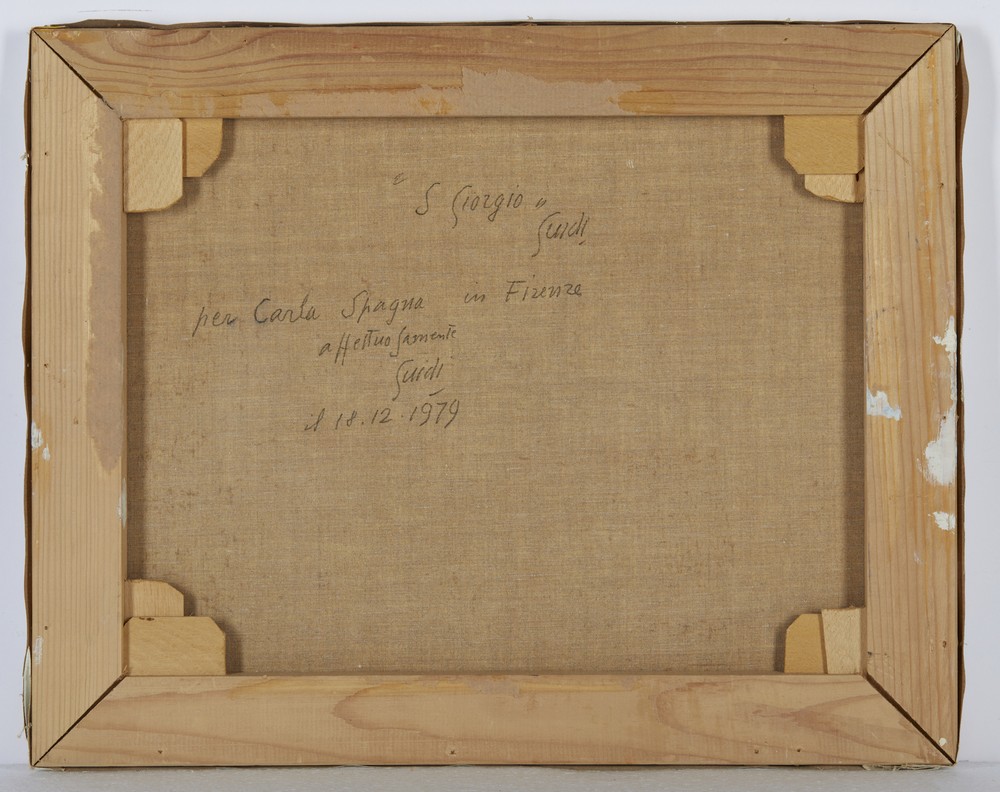 " S Giorgio "
Guidi
per Carla Spagna in Firenze
affettuosamente
Guidi
il 18.12.1979